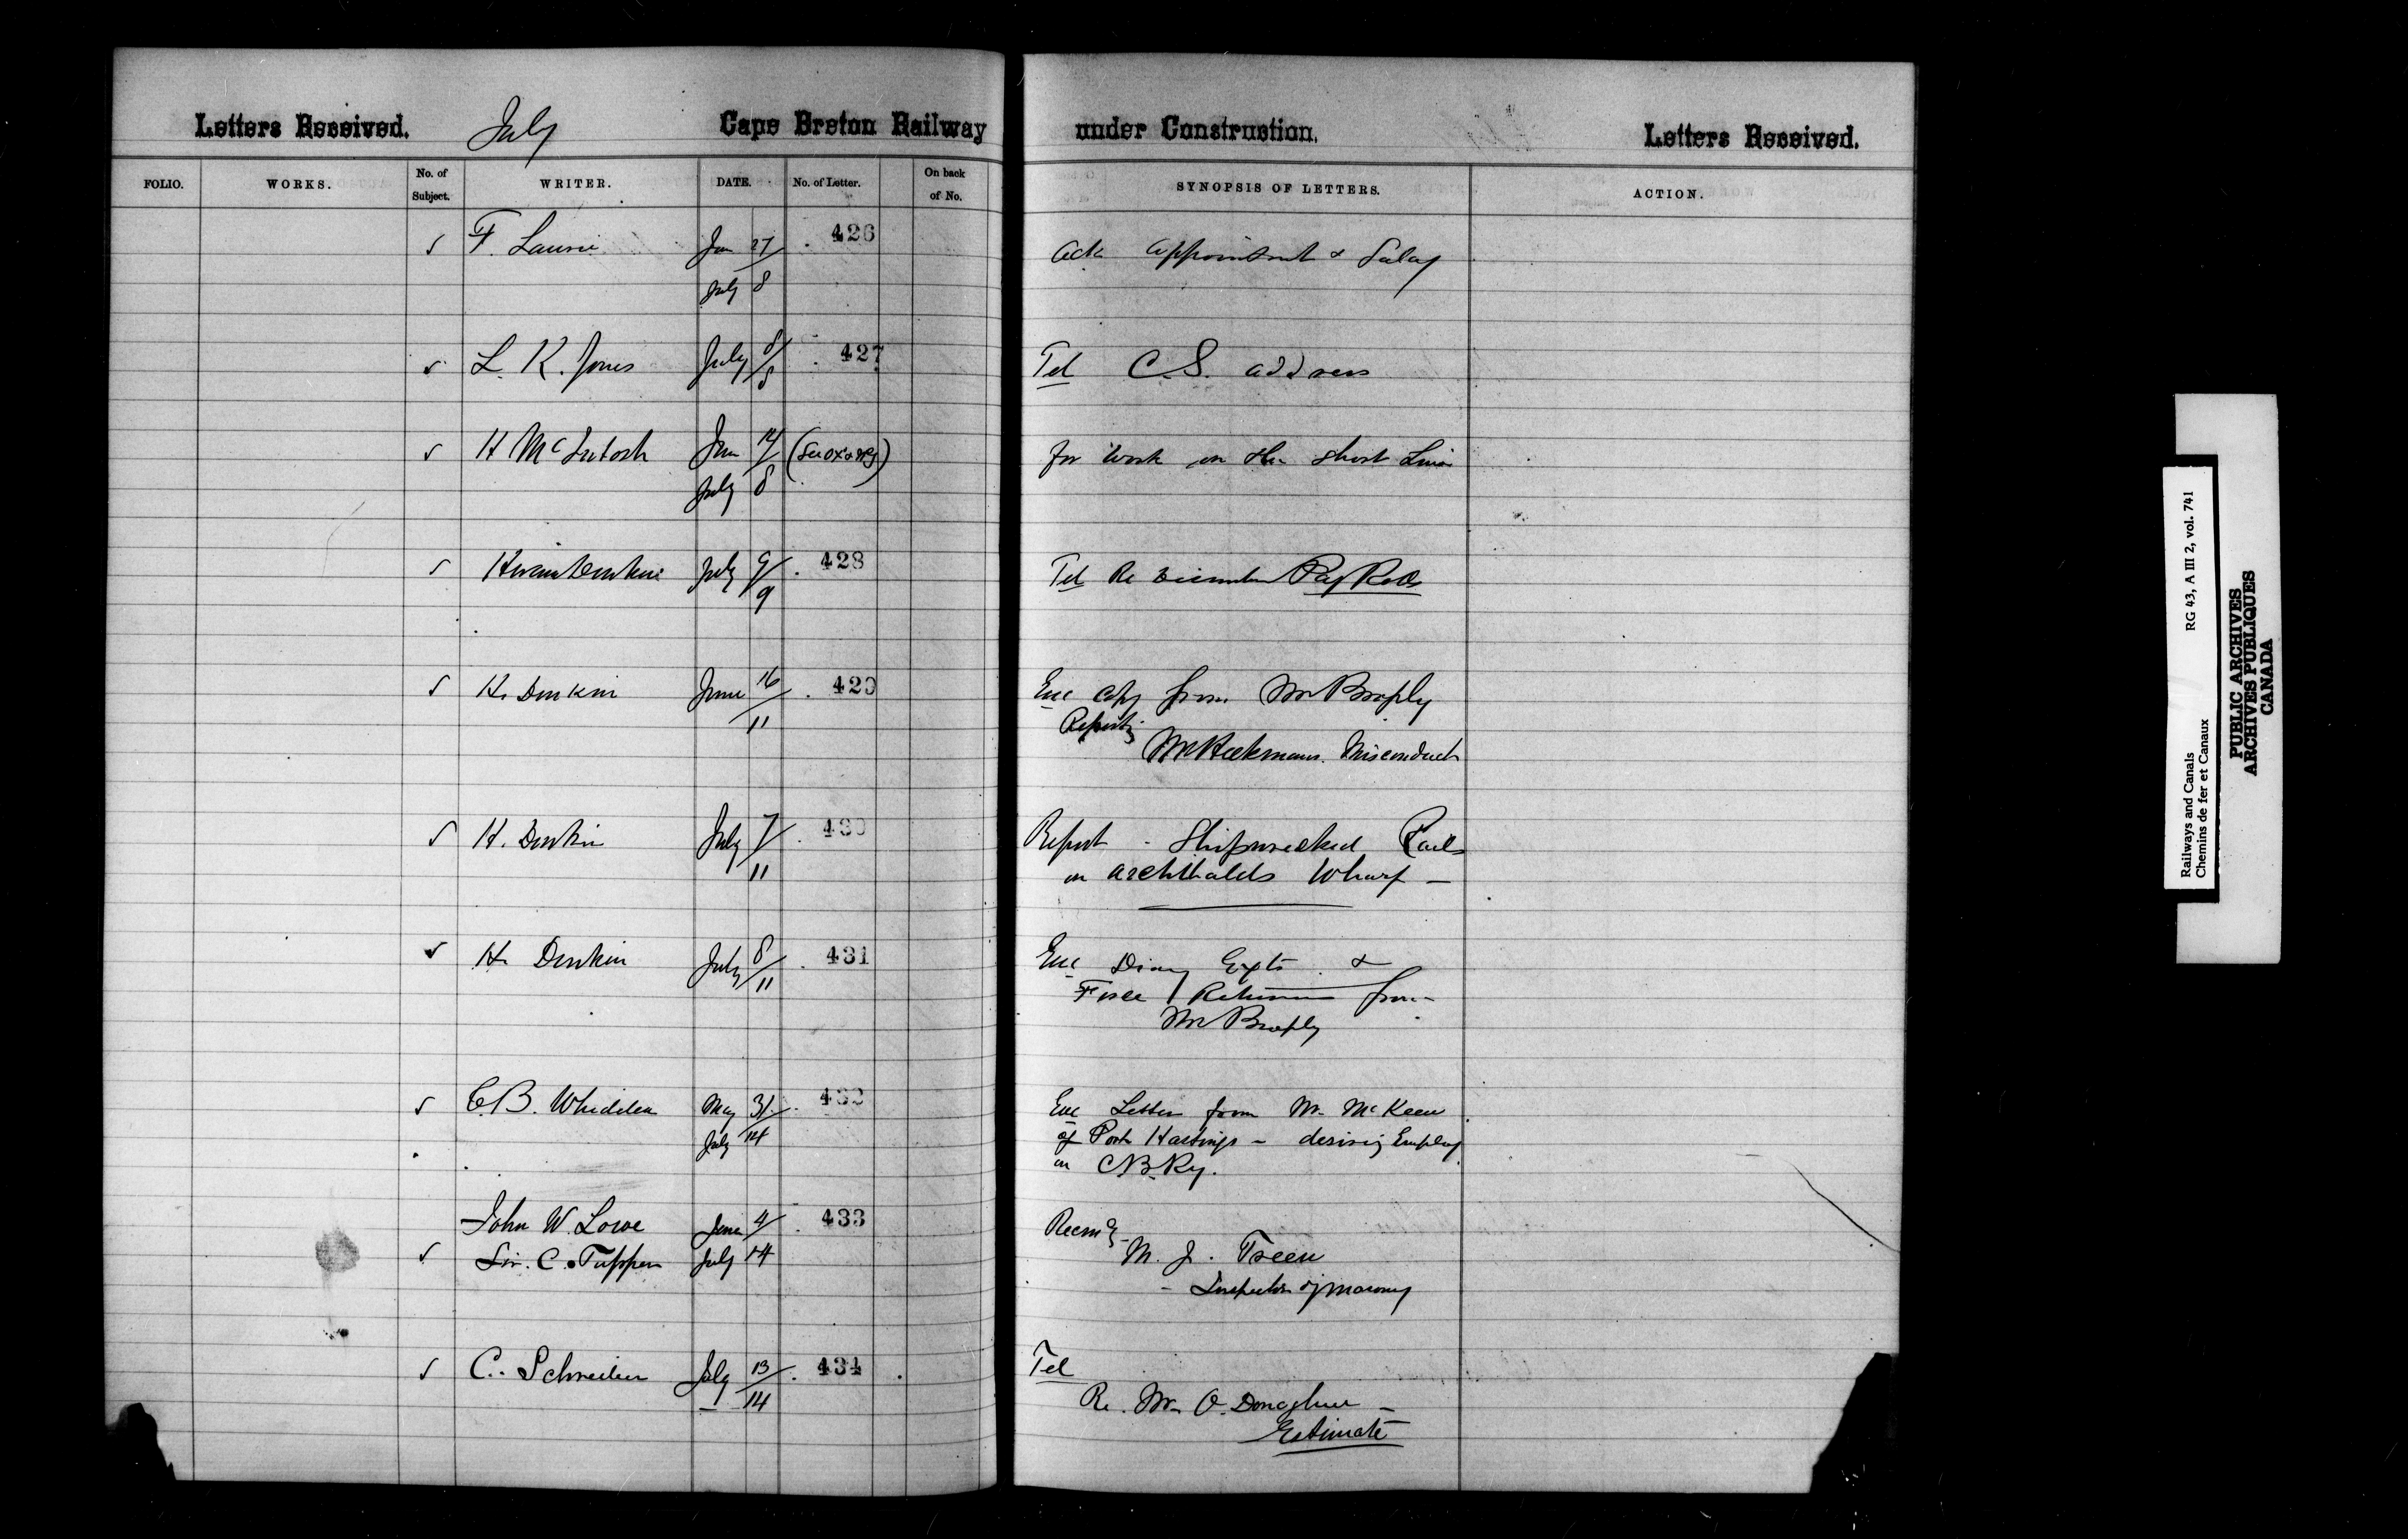 Letters Received. July Cape Breton Railway under Construction. Letters Received.
FOLIO. WORKS. No. of Subject. WRITER. DATE. No. of Letter. On back of No. SYNOPSIS OF LETTERS. ACTION.
F. Laurie Jan 27/ 426 Ack appointment & Salary
July 8
L. K. Jones July 8/8 427 Tel C.S. address
H McIntosh 14/ for Work on the Short Line
July 8
July 9/9 428 Tel Re Pay Rolls
H. Donkin June 16/11 429 Enc copy from Mr Brophy
Reporting
Mr Misconduct
H. Donkin July 7/11 430 Report - Shipwrecked Rails
on Archibalds Wharf -
H. Donkin July 8/11 431 Enc Diary Expts &
Force Returns from
Mr Brophy
C.B. Whidden May 31/ 432 Enc Letter from Mr. McKeen
July 14 of Port Hastings - desiring Employ
on C.B. Ry.
John W. Lowe June 4/ 433 Recmg
Sir. C. Tupper July 14 M. J. Treen
- Inspector of Masonry
C. Schreiber July 13/14 434 Tel
Re. Mr. O. Donaghue -
Estimate
Railways and Canals RG 43, A III 2, vol. 741
Chemins de fer et Canaux
PUBLIC ARCHIVES
ARCHIVES PUBLIQUES
CANADA